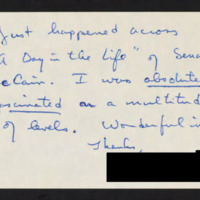 just happened across
"A Day in the Life" of Sena
cCain. I was absolute
ascinated on a multitud
of levels. Wonderful in
Thanks,